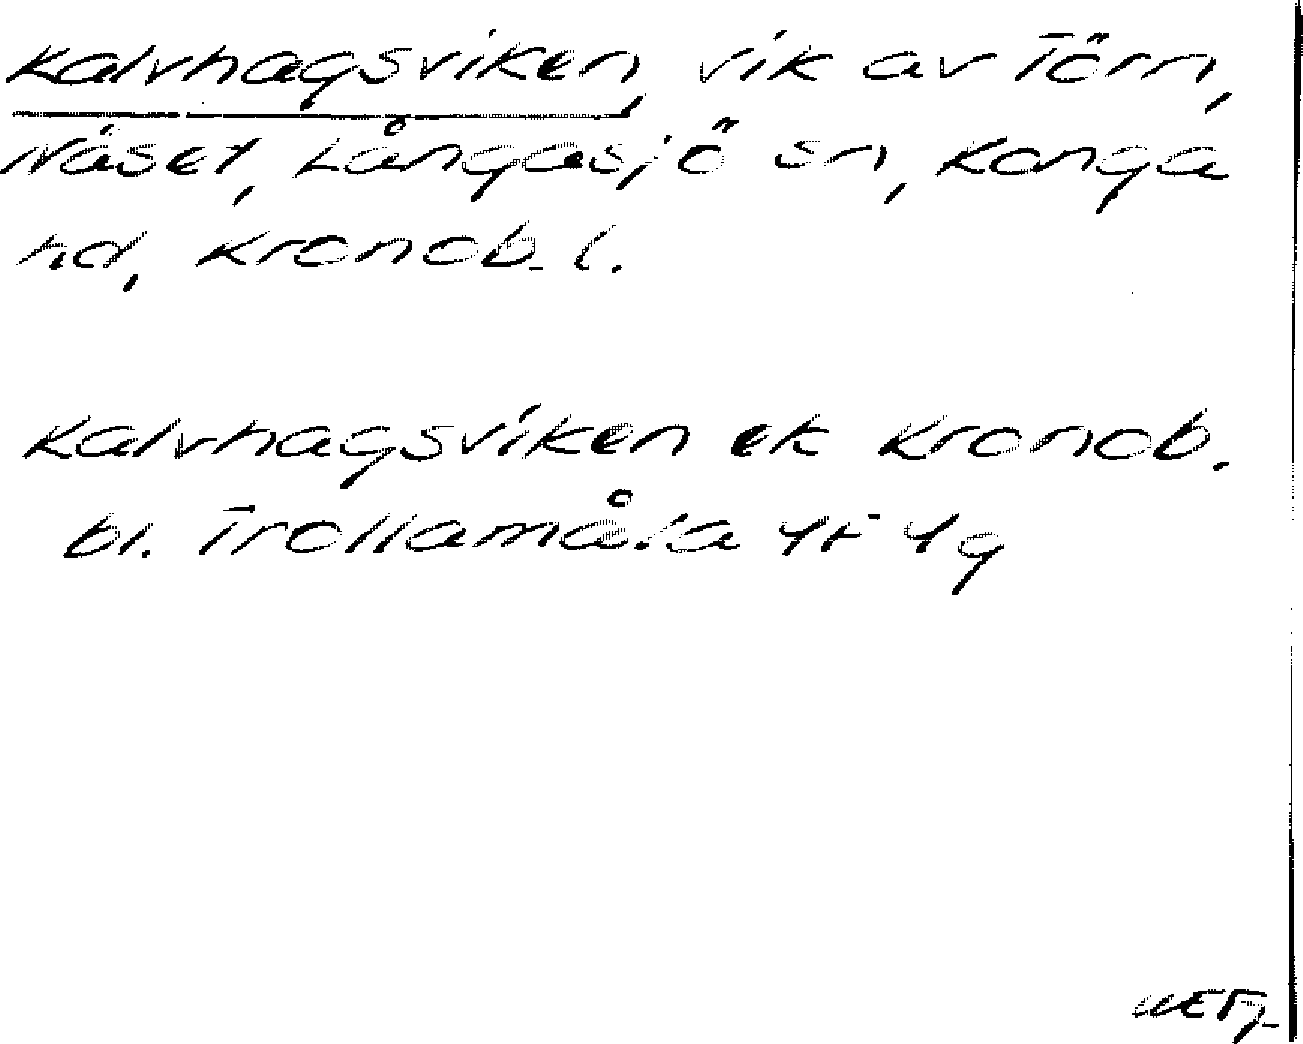 Kalvhagsviken, vik av Törn,
Näset, Långasjö sn, Konga
hd, Kronob. l.
Kalvhagsviken ek Kronob.
bl. Trollamåla 4F 4g